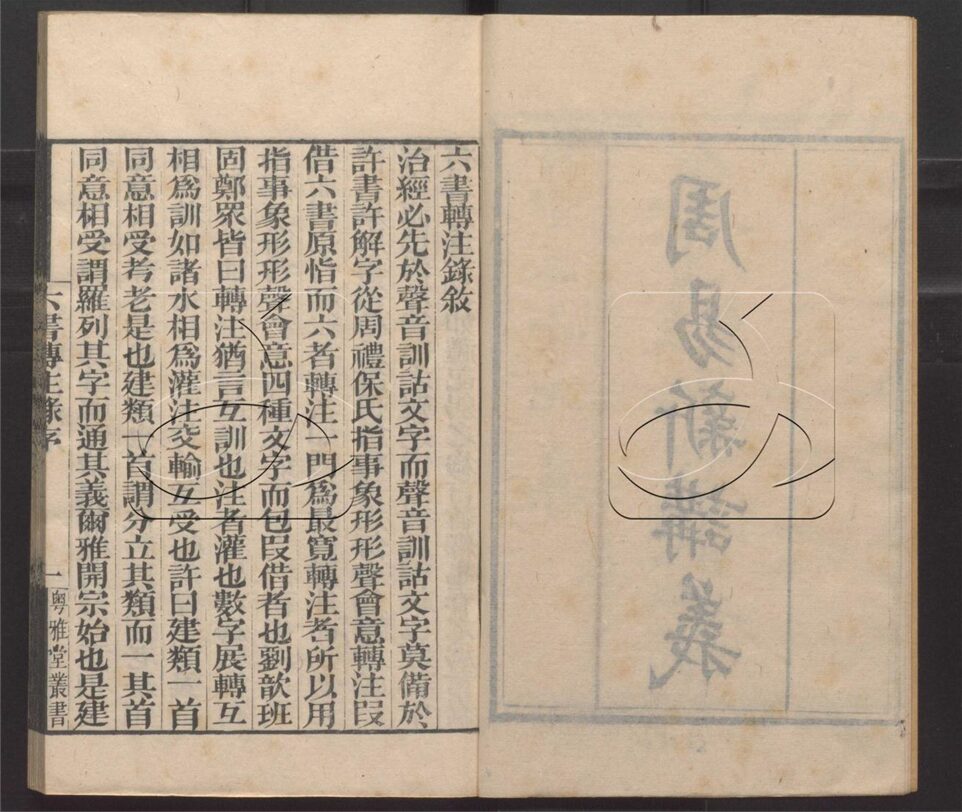 周易新講義
六書轉注錄敘
治經必先於聲音訓詁文字而聲音訓詁文字莫備於
許書許解字從周禮保氏指事象形形聲會意轉注叚
借六書原恉而六者轉注一門爲最寬轉注者所以用
指事象形形聲會意四種文字而包叚借者也劉歆班
固鄭眾皆曰轉注猶言互訓也注者灌也數字展轉互
相爲訓如諸水相爲灌注交輸互受也許曰建類一首
同意相受考老是也建類一首謂分立其類而一其首
同意相受謂羅列其字而通其義爾雅開宗始也是建
六書轉注錄序
一
粵雅堂叢書